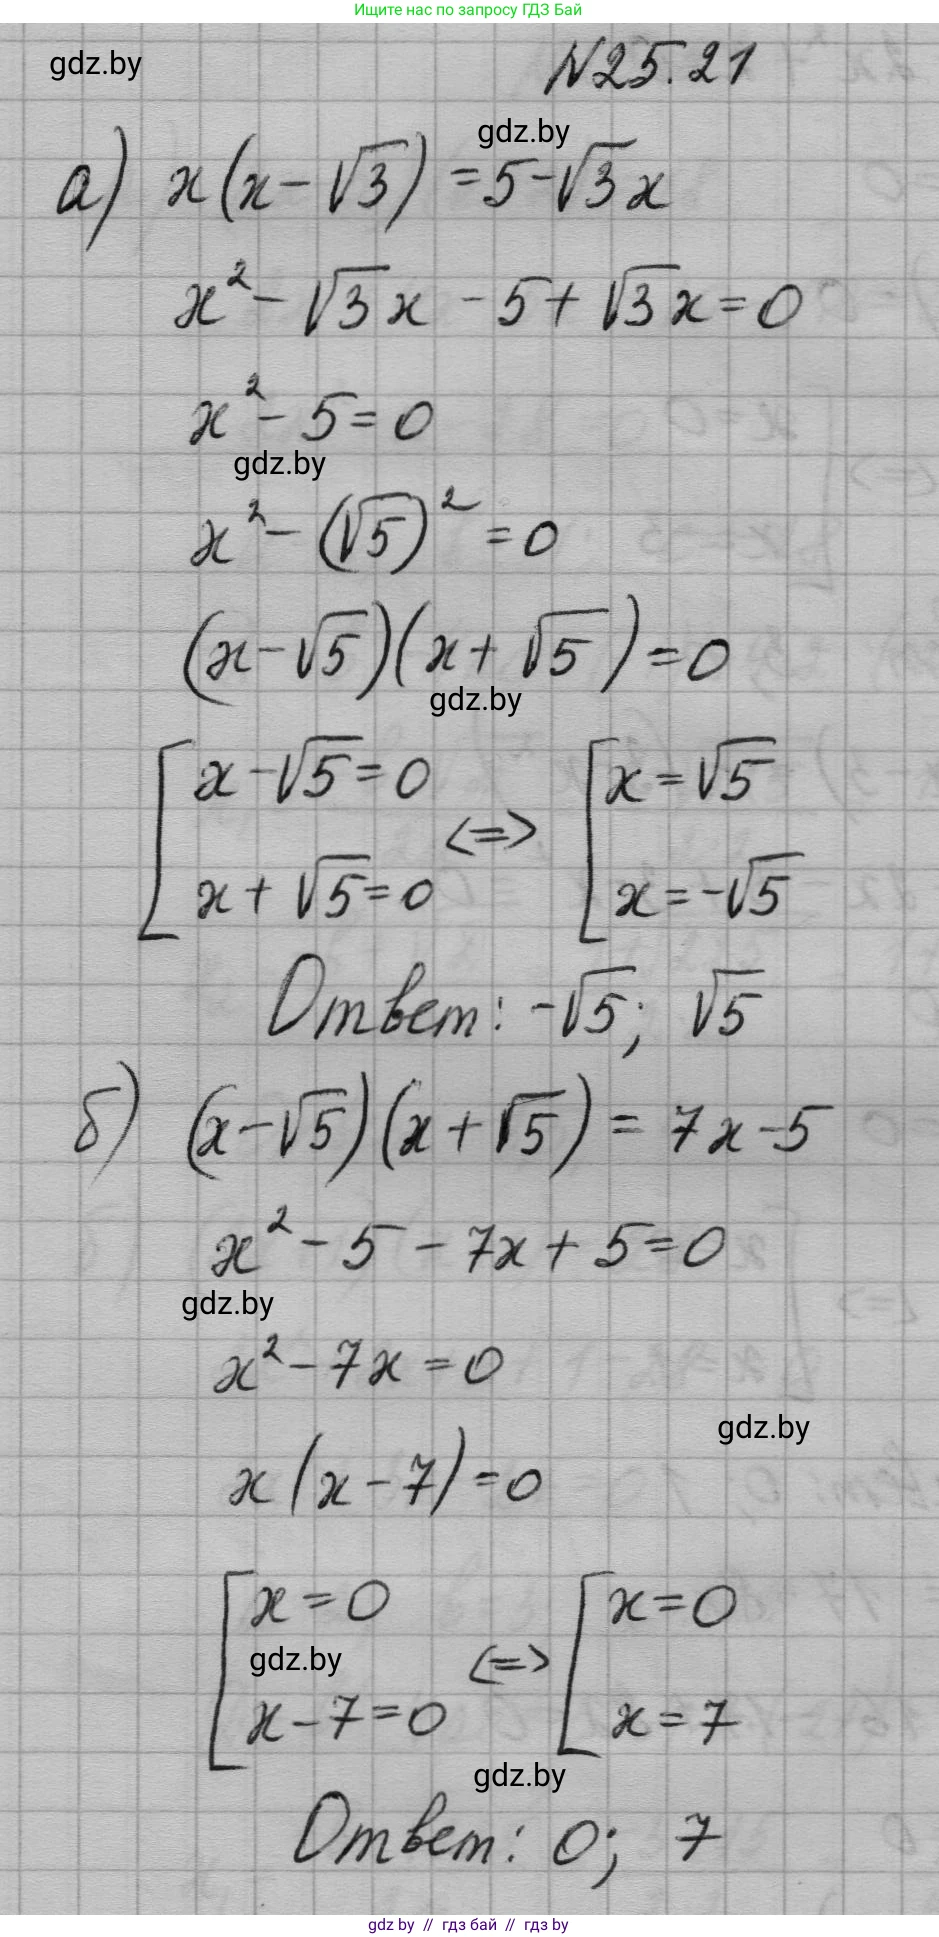 Ищите нас по запросу ГДЗ Бай
gdz.by
N25.21
gdz.by
а) x(x-√3) = 5-√3x
x² - √3x - 5 + √3x = 0
x² - 5 = 0
gdz.by
x² - (√5)² = 0
(x-√5)(x+√5) = 0
gdz.by
[ x-√5 = 0 <=> [ x = √5
x+√5 = 0 x = -√5
Ответ: -√5; √5
б) (x-√5)(x+√5) = 7x-5
x² - 5 - 7x + 5 = 0
gdz.by
x² - 7x = 0
gdz.by
x(x-7) = 0
[ x = 0 <=> [ x = 0
gdz.by
x-7 = 0 x = 7
gdz.by
Ответ: 0; 7
gdz by // гдз бай // gdz by